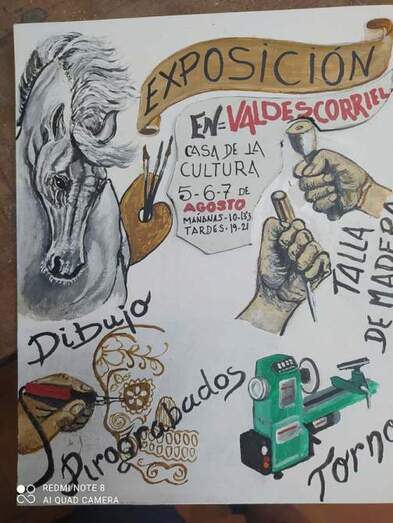 EXPOSICIÓN
EN= VALDESCORRIEL
CASA DE LA
CULTURA
5-6-7 DE
AGOSTO
TARDES-19-21
TALLA
DE MADERA
Dibujo
Pirograbados
Torno
REDMI NOTE 8
AI QUAD CAMERA